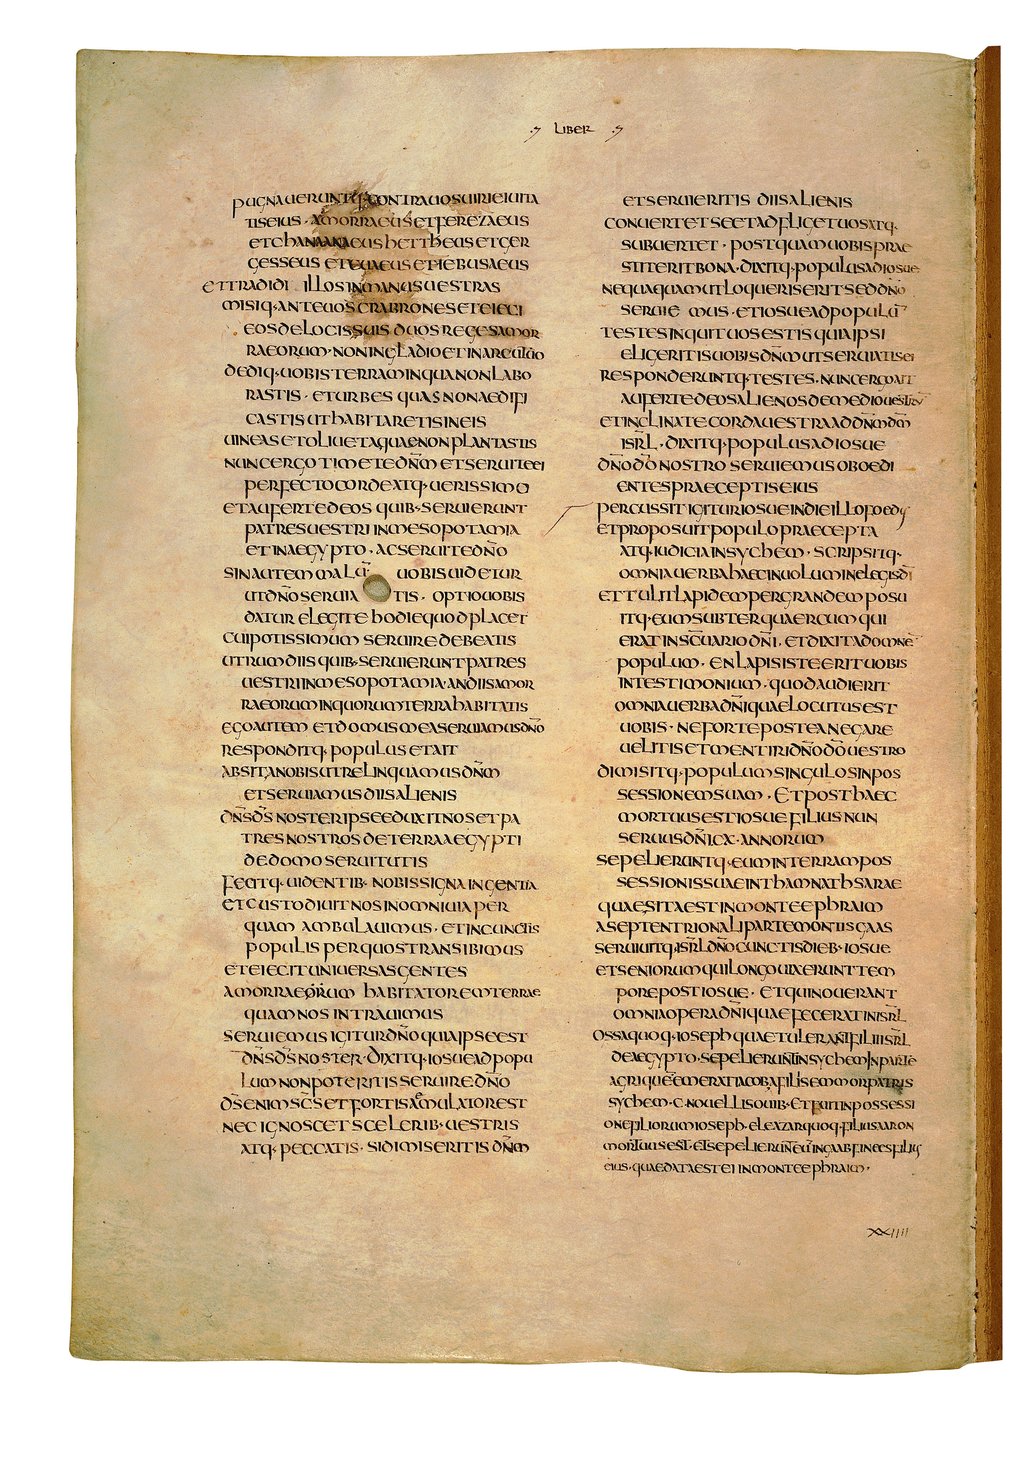 LIBER
PUGNAUERUNTQ· CONTRA UOS UIRI EIUITA
TIS EIUS · AMORRAEUS ET FEREZAEUS
ET CHANANAEUS HETTHEUS ET GER
GESSEUS ET EUAEUS ET IEBUSAEUS
ET TRADIDI ILLOS IN MANUS UESTRAS
MISIQ· ANTE UOS CRABRONES ET EIECI
EOS DE LOCIS SUIS DUOS REGES AMOR
RAEORUM · NON IN GLADIO ET IN ARCU TUO
DEDIQ· UOBIS TERRAM IN QUA NON LABO
RASTIS · ET URBES QUAS NON AEDIFI
CASTIS UT HABITARETIS IN EIS
UINEAS ET OLIUETA QUAE NON PLANTASTIS
NUNC ERGO TIMETE DN̄M ET SERUITE EI
PERFECTO CORDE ATQ· UERISSIMO
ET AUFERTE DEOS QUIB· SERUIERUNT
PATRES UESTRI IN MESOPOTAMIA
ET IN AEGYPTO · AC SERUITE DN̄O
SIN AUTEM MALŪ· UOBIS UIDETUR
UT DN̄O SERUIATIS · OPTIO UOBIS
DATUR ELEGITE HODIE QUOD PLACET
CUI POTISSIMUM SERUIRE DEBEATIS
UTRUM DIIS QUIB· SERUIERUNT PATRES
UESTRI IN MESOPOTAMIA · AN DIIS AMOR
RAEORUM IN QUORUM TERRA HABITATIS
EGO AUTEM ET DOMUS MEA SERUIAMUS DN̄O
RESPONDITQ· POPULUS ET AIT
ABSIT A NOBIS UT RELINQUAMUS DN̄M
ET SERUIAMUS DIIS ALIENIS
DN̄S D̄S NOSTER IPSE EDUXIT NOS ET PA
TRES NOSTROS DE TERRA AEGYPTI
DE DOMO SERUITUTIS
FECITQ· UIDENTIB· NOBIS SIGNA INGENTIA
ET CUSTODIUIT NOS IN OMNI UIA PER
QUAM AMBULAUIMUS · ET IN CUNCTIS
POPULIS PER QUOS TRANSIBIMUS
ET EIECIT UNIUERSAS GENTES
AMORRAEORUM HABITATOREM TERRAE
QUAM NOS INTRAUIMUS
SERUIEMUS IGITUR DN̄O QUIA IPSE EST
DN̄S D̄S NOSTER · DIXITQ· IOSUE AD POPU
LUM NON POTERITIS SERUIRE DN̄O
D̄S ENIM SC̄S ET FORTIS AEMULATOR EST
NEC IGNOSCET SCELERIB· UESTRIS
ATQ· PECCATIS · SI DIMISERITIS DN̄M
ET SERUIERITIS DIIS ALIENIS
CONUERTET SE ET ADFLIGET UOS ATQ·
SUBUERTET · POSTQUAM UOBIS PRAE
STITERIT BONA · DIXITQ· POPULUS AD IOSUE
NEQUAQUAM UT LOQUERIS ERIT SED DN̄O
SERUIEMUS · ET IOSUE AD POPULŪ
TESTES INQUIT UOS ESTIS QUIA IPSI
ELIGERITIS UOBIS DN̄M UT SERUIATIS EI
RESPONDERUNTQ· TESTES · NUNC ERGO AIT
AUFERTE DEOS ALIENOS DE MEDIO UESTRI
ET INCLINATE CORDA UESTRA AD DN̄M D̄M
ISR̄L · DIXITQ· POPULUS AD IOSUE
DN̄O D̄O NOSTRO SERUIEMUS OBOEDI
ENTES PRAECEPTIS EIUS
PERCUSSIT IGITUR IOSUE IN DIE ILLO FOEDUS
ET PROPOSUIT POPULO PRAECEPTA
ATQ· IUDICIA IN SYCHEM · SCRIPSITQ·
OMNIA UERBA HAEC IN UOLUMINE LEGIS DĪ
ET TULIT LAPIDEM PERGRANDEM POSU
ITQ· EUM SUBTER QUAERCUM QUI
ERAT IN SC̄UARIO DN̄I · ET DIXIT AD OMNĒ
POPULUM · EN LAPIS ISTE ERIT UOBIS
IN TESTIMONIUM · QUOD AUDIERIT
OMNIA UERBA DN̄I QUAE LOCUTUS EST
UOBIS · NE FORTE POSTEA NEGARE
UELITIS ET MENTIRI DN̄O D̄O UESTRO
DIMISITQ· POPULUM SINGULOS IN POS
SESSIONEM SUAM · ET POST HAEC
MORTUUS EST IOSUE FILIUS NUN
SERUUS DN̄I CX · ANNORUM
SEPELIERUNTQ· EUM IN TERRAM POS
SESSIONIS SUAE IN THAMNATHSARAE
QUAE SITA EST IN MONTE EPHRAIM
A SEPTENTRIONALI PARTE MONTIS GAAS
SERUIUITQ· ISR̄L DN̄O CUNCTIS DIEB· IOSUE
ET SENIORUM QUI LONGO UIXERUNT TEM
PORE POST IOSUE · ET QUI NOUERANT
OMNIA OPERA DN̄I QUAE FECERAT IN ISR̄L
OSSA QUOQ· IOSEPH QUAE TULERANT FILII ISR̄L
DE AEGYPTO · SEPELIERUNT IN SYCHEM IN PARTE
AGRI QUĒ EMERAT IACOB A FILIIS EMMOR PATRIS
SYCHEM · C · NOUELLIS OUIB· ET FUIT IN POSSESSI
ONE FILIORUM IOSEPH · ELEAZAR QUOQ· FILIUS AARON
MORTUUS EST · ET SEPELIERUNT EŪ IN GAAB FINEES FILII
EIUS · QUAE DATA EST EI IN MONTE EPHRAIM ·
XXIIII